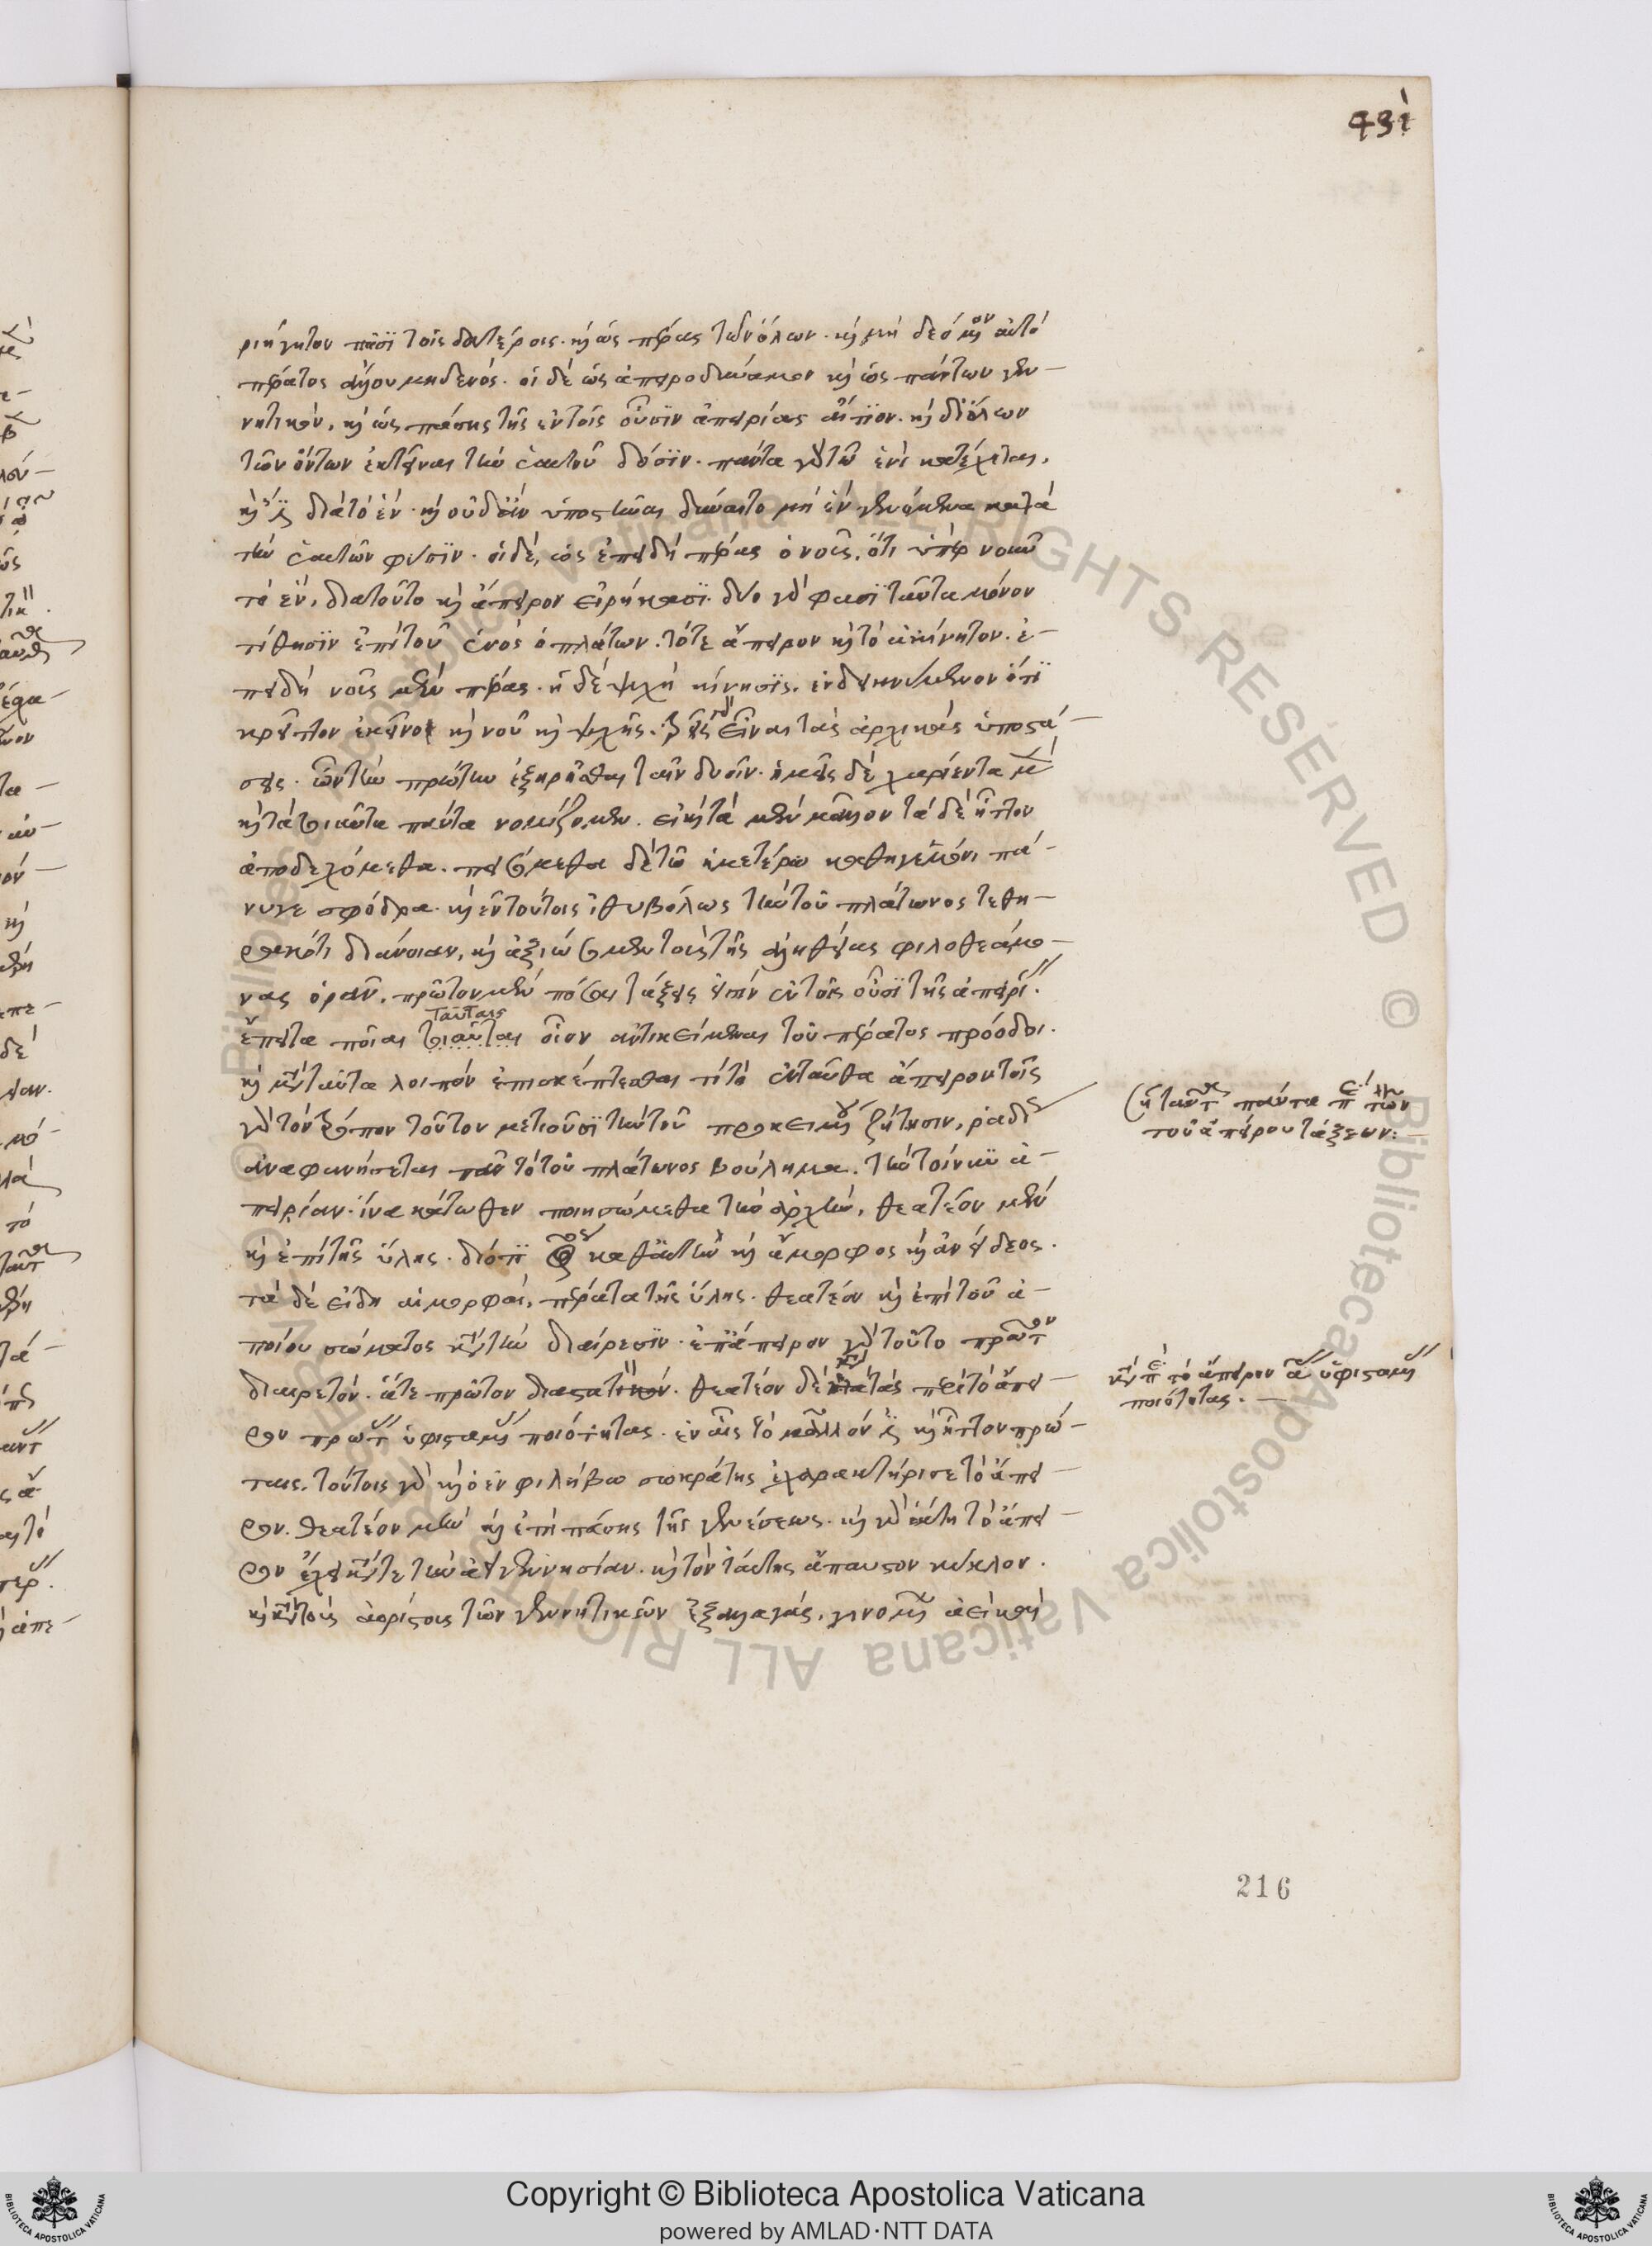 431
ριήγητον πᾶσι τοῖς δευτέροις. καὶ ὡς πέρας τῶν ὅλων. καὶ μὴ δεόμενον αὐτὸ
πέρατος ἄλλου μηδενός. οἱ δὲ ὡς ἀπειροδύναμον καὶ ὡς πάντων γεν-
νητικὸν, καὶ ὡς πάσης τῆς ἐν τοῖς οὖσιν ἀπειρίας αἴτιον. καὶ δι' ὅλων
τῶν ὄντων ἐκτεῖναν τὴν ἑαυτοῦ δόσιν. πάντα γὰρ τῷ ἑνὶ κατέχεται,
καὶ ἔστι διὰ τὸ ἕν. καὶ οὐδ' ἂν ὑποστῆναι δύναιτο μὴ ἓν γενόμενα κατὰ
τὴν ἑαυτῶν φύσιν. οἱ δέ, ὡς ἐπειδὴ πέρας ὁ νοῦς, ὅτι ὑπὲρ νοῦν
τὸ ἕν, διὰ τοῦτο καὶ ἄπειρον εἰρήκασι. δύο γὰρ φασὶ ταῦτα μόνον
τίθησιν ἐπὶ τοῦ ἑνὸς ὁ πλάτων. τό τε ἄπειρον καὶ τὸ ἀκίνητον. ἐ-
πειδὴ νοῦς μὲν πέρας. ἡ δὲ ψυχὴ κίνησις. ἐνδεικνύμενον ὅτι
κρεῖττον ἐκεῖνο καὶ νοῦ καὶ ψυχῆς. τρεῖς γὰρ εἶναι τὰς ἀρχικὰς ὑποστά-
σεις. ὧν τὴν πρώτην ἐξῃρῆσθαι ταῖν δυοῖν. ἡμεῖς δὲ χαρίεντα μὲν
καὶ τὰ τοιαῦτα πάντα νομίζομεν. εἰ καὶ τὰ μὲν μᾶλλον τὰ δὲ ἧττον
ἀποδεχόμεθα. πειθόμεθα δὲ τῷ ἡμετέρῳ καθηγεμόνι πά-
νυ γε σφόδρα. καὶ ἐν τούτοις ἰθυβόλως τὴν τοῦ πλάτωνος τεθη-
ρακότι διάνοιαν, καὶ ἀξιώσομεν τοὺς τῆς ἀληθείας φιλοθεάμο-
νας ὁρᾶν, πρῶτον μὲν πόσαι τάξεις εἰσὶν ἐν τοῖς οὖσι τῆς ἀπειρί.
ταύταις
ἔπειτα ποῖαι τοιαῦται οἷον ἀντικείμεναι τοῦ πέρατος πρόοδοι.
καὶ μετὰ ταῦτα λοιπὸν ἐπισκέπτεσθαι τί τὸ ἐνταῦθα ἄπειρον τοῖς
γὰρ τὸν τρόπον τοῦτον μετιοῦσι τὴν τοῦ προκειμένου ζήτησιν, ῥαδίως
ἀναφανήσεται πᾶν τὸ τοῦ πλάτωνος βούλημα. τὴν τοίνυν ἀ-
πειρίαν. ἵνα κάτωθεν ποιησώμεθα τὴν ἀρχὴν, θεατέον μὲν
καὶ ἐπὶ τῆς ὕλης. διότι ἀόριστος καθ' αὑτὴν καὶ ἄμορφος καὶ ἀνείδεος.
τὰ δὲ εἴδη αἱ μορφαὶ, πέρατα τῆς ὕλης. θεατέον καὶ ἐπὶ τοῦ ἀ-
ποίου σώματος κατὰ τὴν διαίρεσιν. ἐπ' ἄπειρον γὰρ τοῦτο πρῶτον
διαιρετόν. ἅτε πρῶτον διαστατὸν. θεατέον δὲ κατὰ τὰς περὶ τὸ ἄπει-
ρον πρώτας ὑφισταμένας ποιότητας. ἐν αἷς τὸ μᾶλλόν ἐστι καὶ ἧττον πρώ-
ταις. τούτοις γὰρ καὶ ὁ ἐν φιλήβῳ σωκράτης ἐχαρακτήρισε τὸ ἄπει-
ρον. θεατέον μὲν καὶ ἐπὶ πάσης τῆς γενέσεως. καὶ γὰρ αὕτη τὸ ἄπει-
ρον ἔχει κατά τε τὴν ἀειγεννησίαν. καὶ τὸν ταύτης ἄπαυστον κύκλον.
καὶ κατὰ τὰς ἀορίστους τῶν γεννητικῶν ἐξαλλαγὰς, γινομένων ἀεὶ καὶ
ση. ταῦτα πάντα περὶ τῶν
τοῦ ἀπείρου τάξεων:
κατὰ τὰς περὶ τὸ ἄπειρον πρώτας ὑφισταμένας
ποιότητας.
216
Copyright © Biblioteca Apostolica Vaticana
powered by AMLAD·NTT DATA